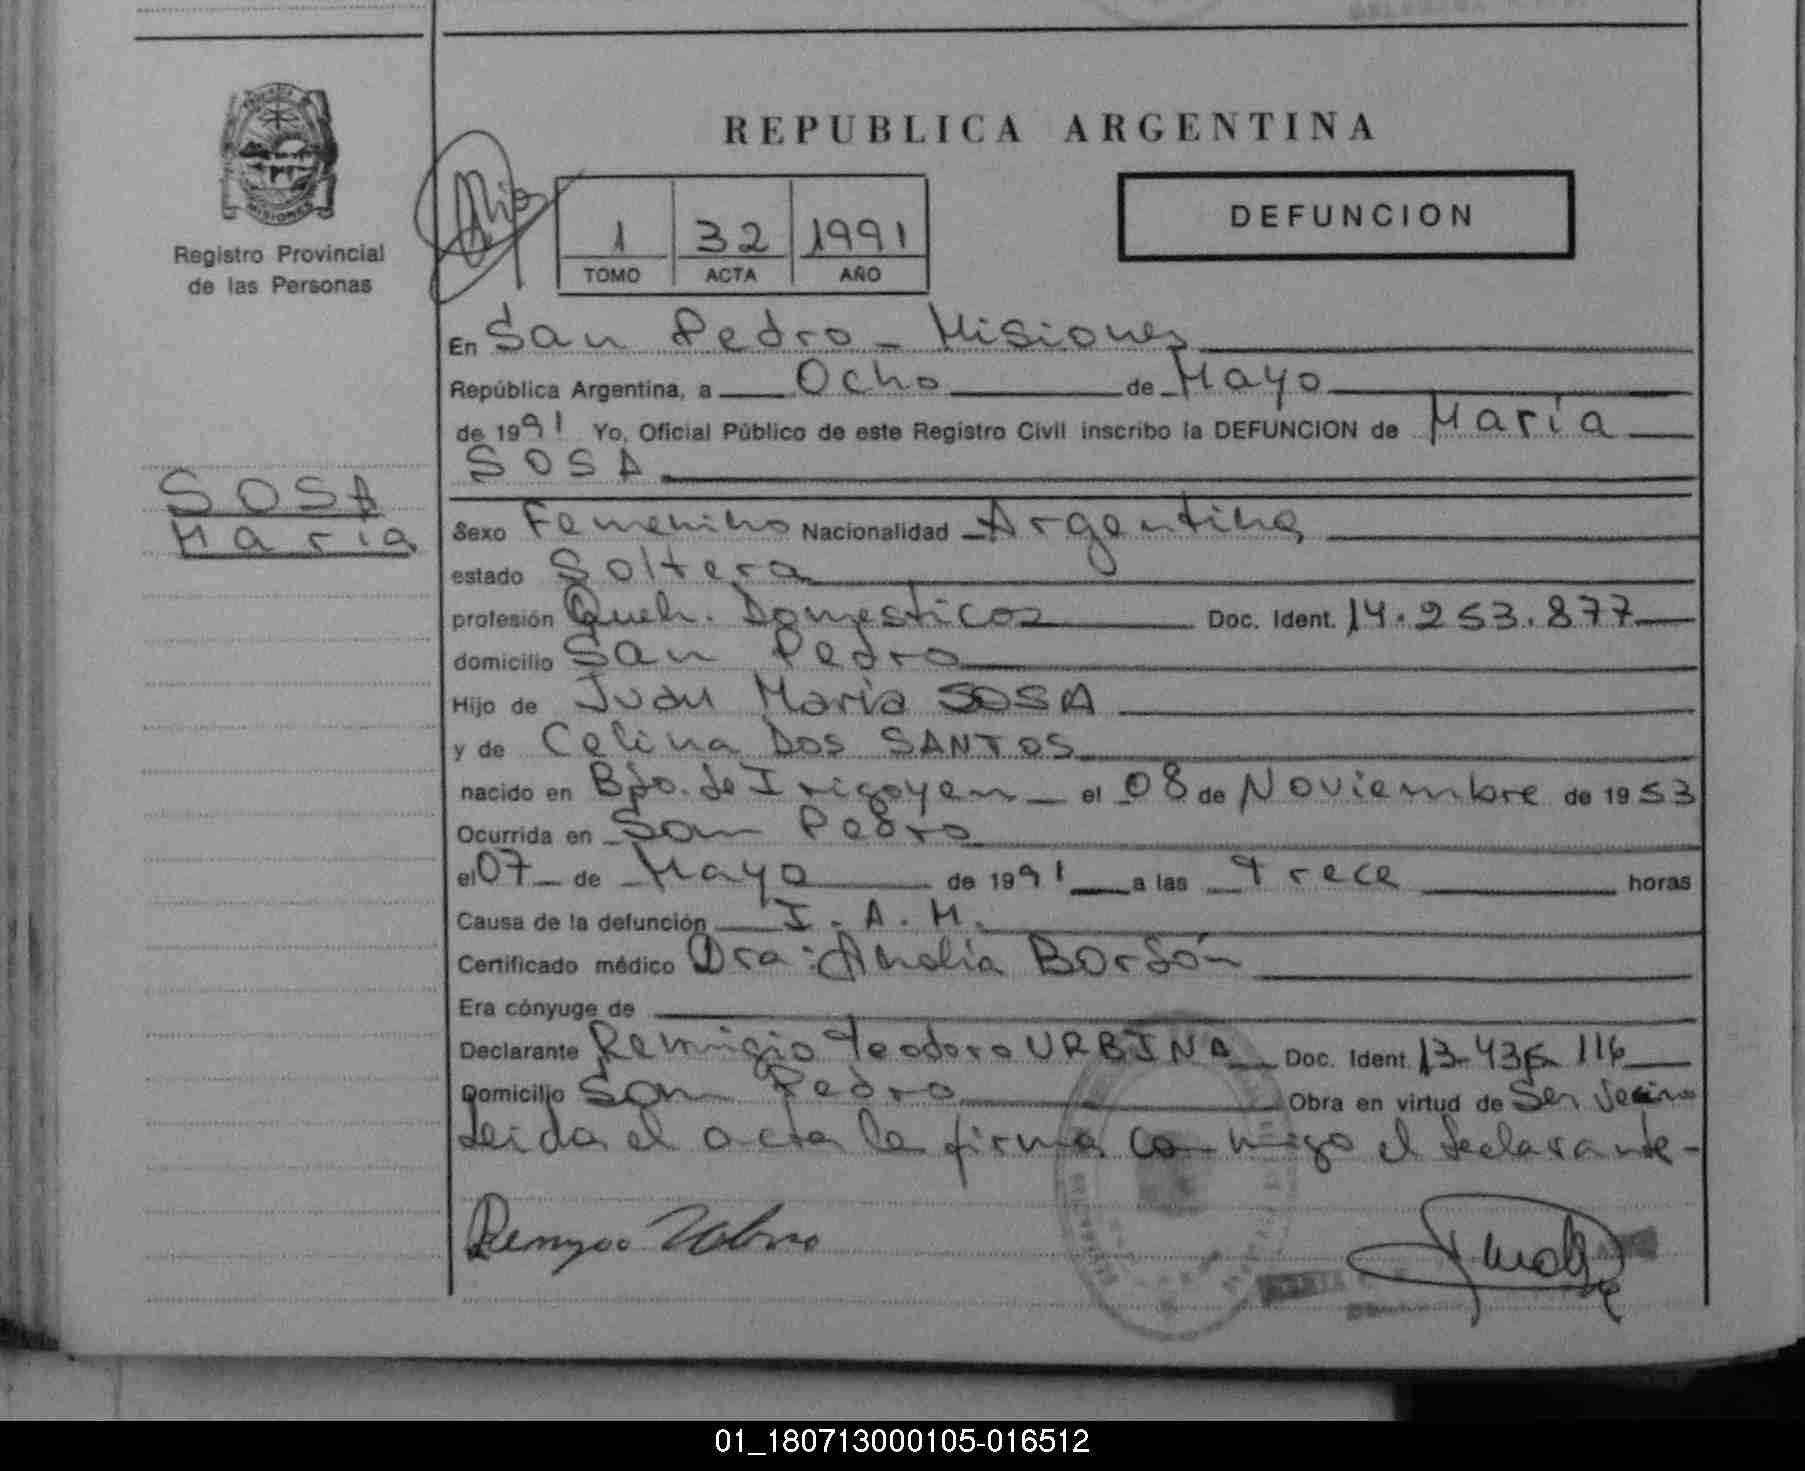 REPUBLICA ARGENTINA
MISIONES
Registro Provincial
de las Personas
1 32 1991
TOMO ACTA AÑO
DEFUNCION
En San Pedro - Misiones
República Argentina, a Ocho de Mayo
de 1991 Yo, Oficial Público de este Registro Civil inscribo la DEFUNCION de María
SOSA
SOSA
María
Sexo Femenino Nacionalidad Argentina
estado Soltera
profesión Queh. Domesticos Doc. Ident. 14.253.877
domicilio San Pedro
Hijo de Juan María SOSA
y de Celina DOS SANTOS
nacido en Bdo. de Irigoyen el 08 de Noviembre de 1953
Ocurrida en San Pedro
el 07 de Mayo de 1991 a las Trece horas
Causa de la defunción I. A. M.
Certificado médico Dra: Amalia
Era cónyuge de
Declarante Remigio Teodoro URBINA Doc. Ident. 13.435.116
Domicilio San Pedro Obra en virtud de Ser Vecino
Leida el acta la firma conmigo el declarante-
01_180713000105-016512